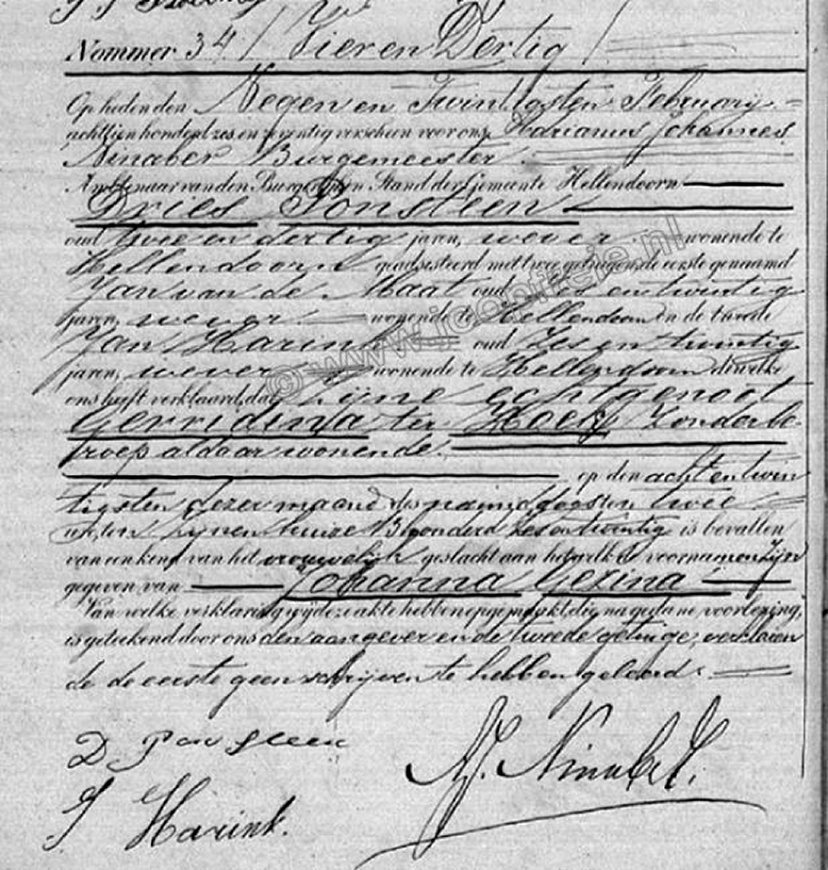 Nommer 34 / Vier en Dertig /
Op heden den Negen en Twintigsten February
achttienhonderd zes en zeventig verscheen voor ons, Adrianus Johannes
Ninaber Burgemeester
Ambtenaar van den Burgerlijken Stand der Gemeente Hellendoorn
Dries Ponsteen
oud twee en dertig jaren, wever wonende te
Hellendoorn geadsisteerd met twee getuigen, de eerste genaamd
Jan van de Maat oud en twintig
jaren, wever wonende te Hellendoorn en de tweede
Jan Harink oud Zes en twintig
jaren, wever wonende te Hellendoorn dewelke
ons heeft verklaard, dat Zijne echtgenoot
Gerridina ter Hoek Zonder be-
roep aldaar wonende
op den acht en twin
tigsten dezer maand des namiddags ten twee
ure, ten Zijnen huize B honderd Zes en twintig is bevallen
van een kind van het vrouwelijk geslacht aan hetwelk de voornamen zijn
gegeven van Johanna Gezina
Van welke verklaring wij deze akte hebben opgemaakt, die, na gedane voorlezing,
is geteekend door ons den aangever en de tweede getuige, verklaren
de de eerste geen schrijven te hebben geleerd.
D Ponsteen
AJ. Ninaber.
J Harink.
© www.rcooiffeie.nl